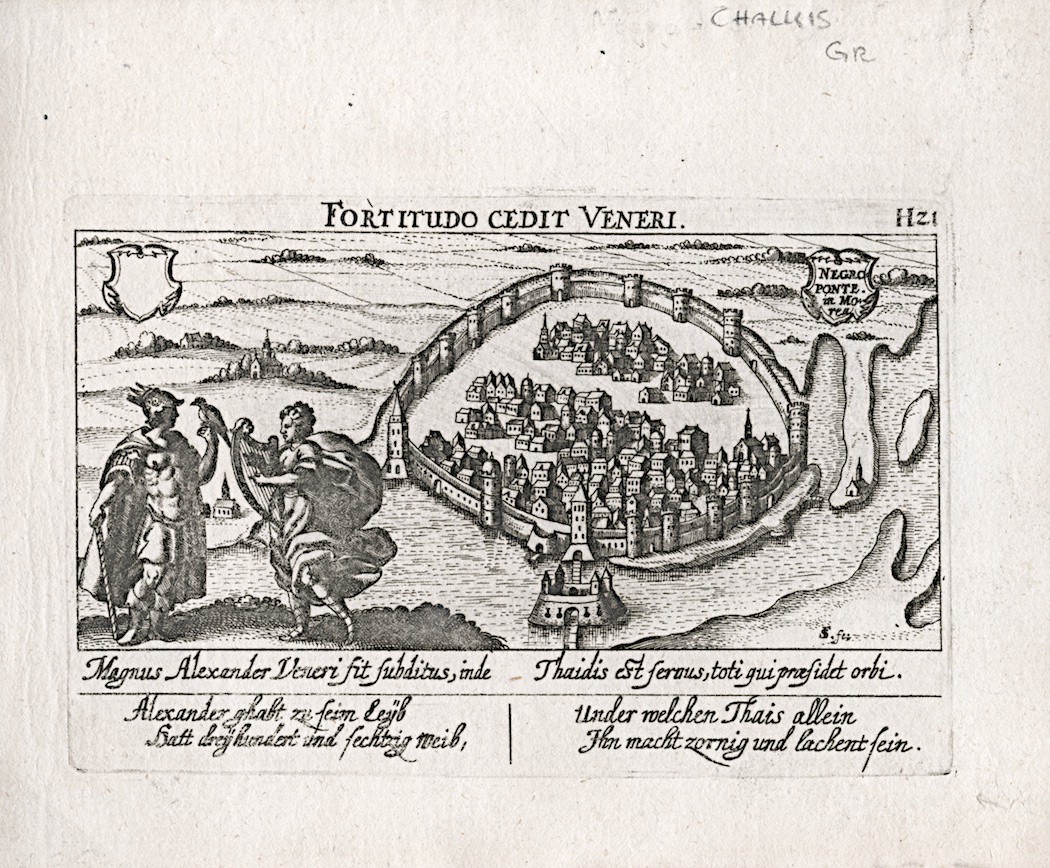 CHALKIS
GR
FORTITUDO CEDIT VENERI.
H21
NEGRO
PONTE.
in Mo-
rea
S. fe.
Magnus Alexander Veneri fit subditus, inde Thaidis est seruus, toti qui præsidet orbi.
Alexander ghabt zu seim Leÿb
Hatt dreÿhundert und sechtzig weib,
Under welchen Thais allein
Ihn macht zornig und lachent sein.